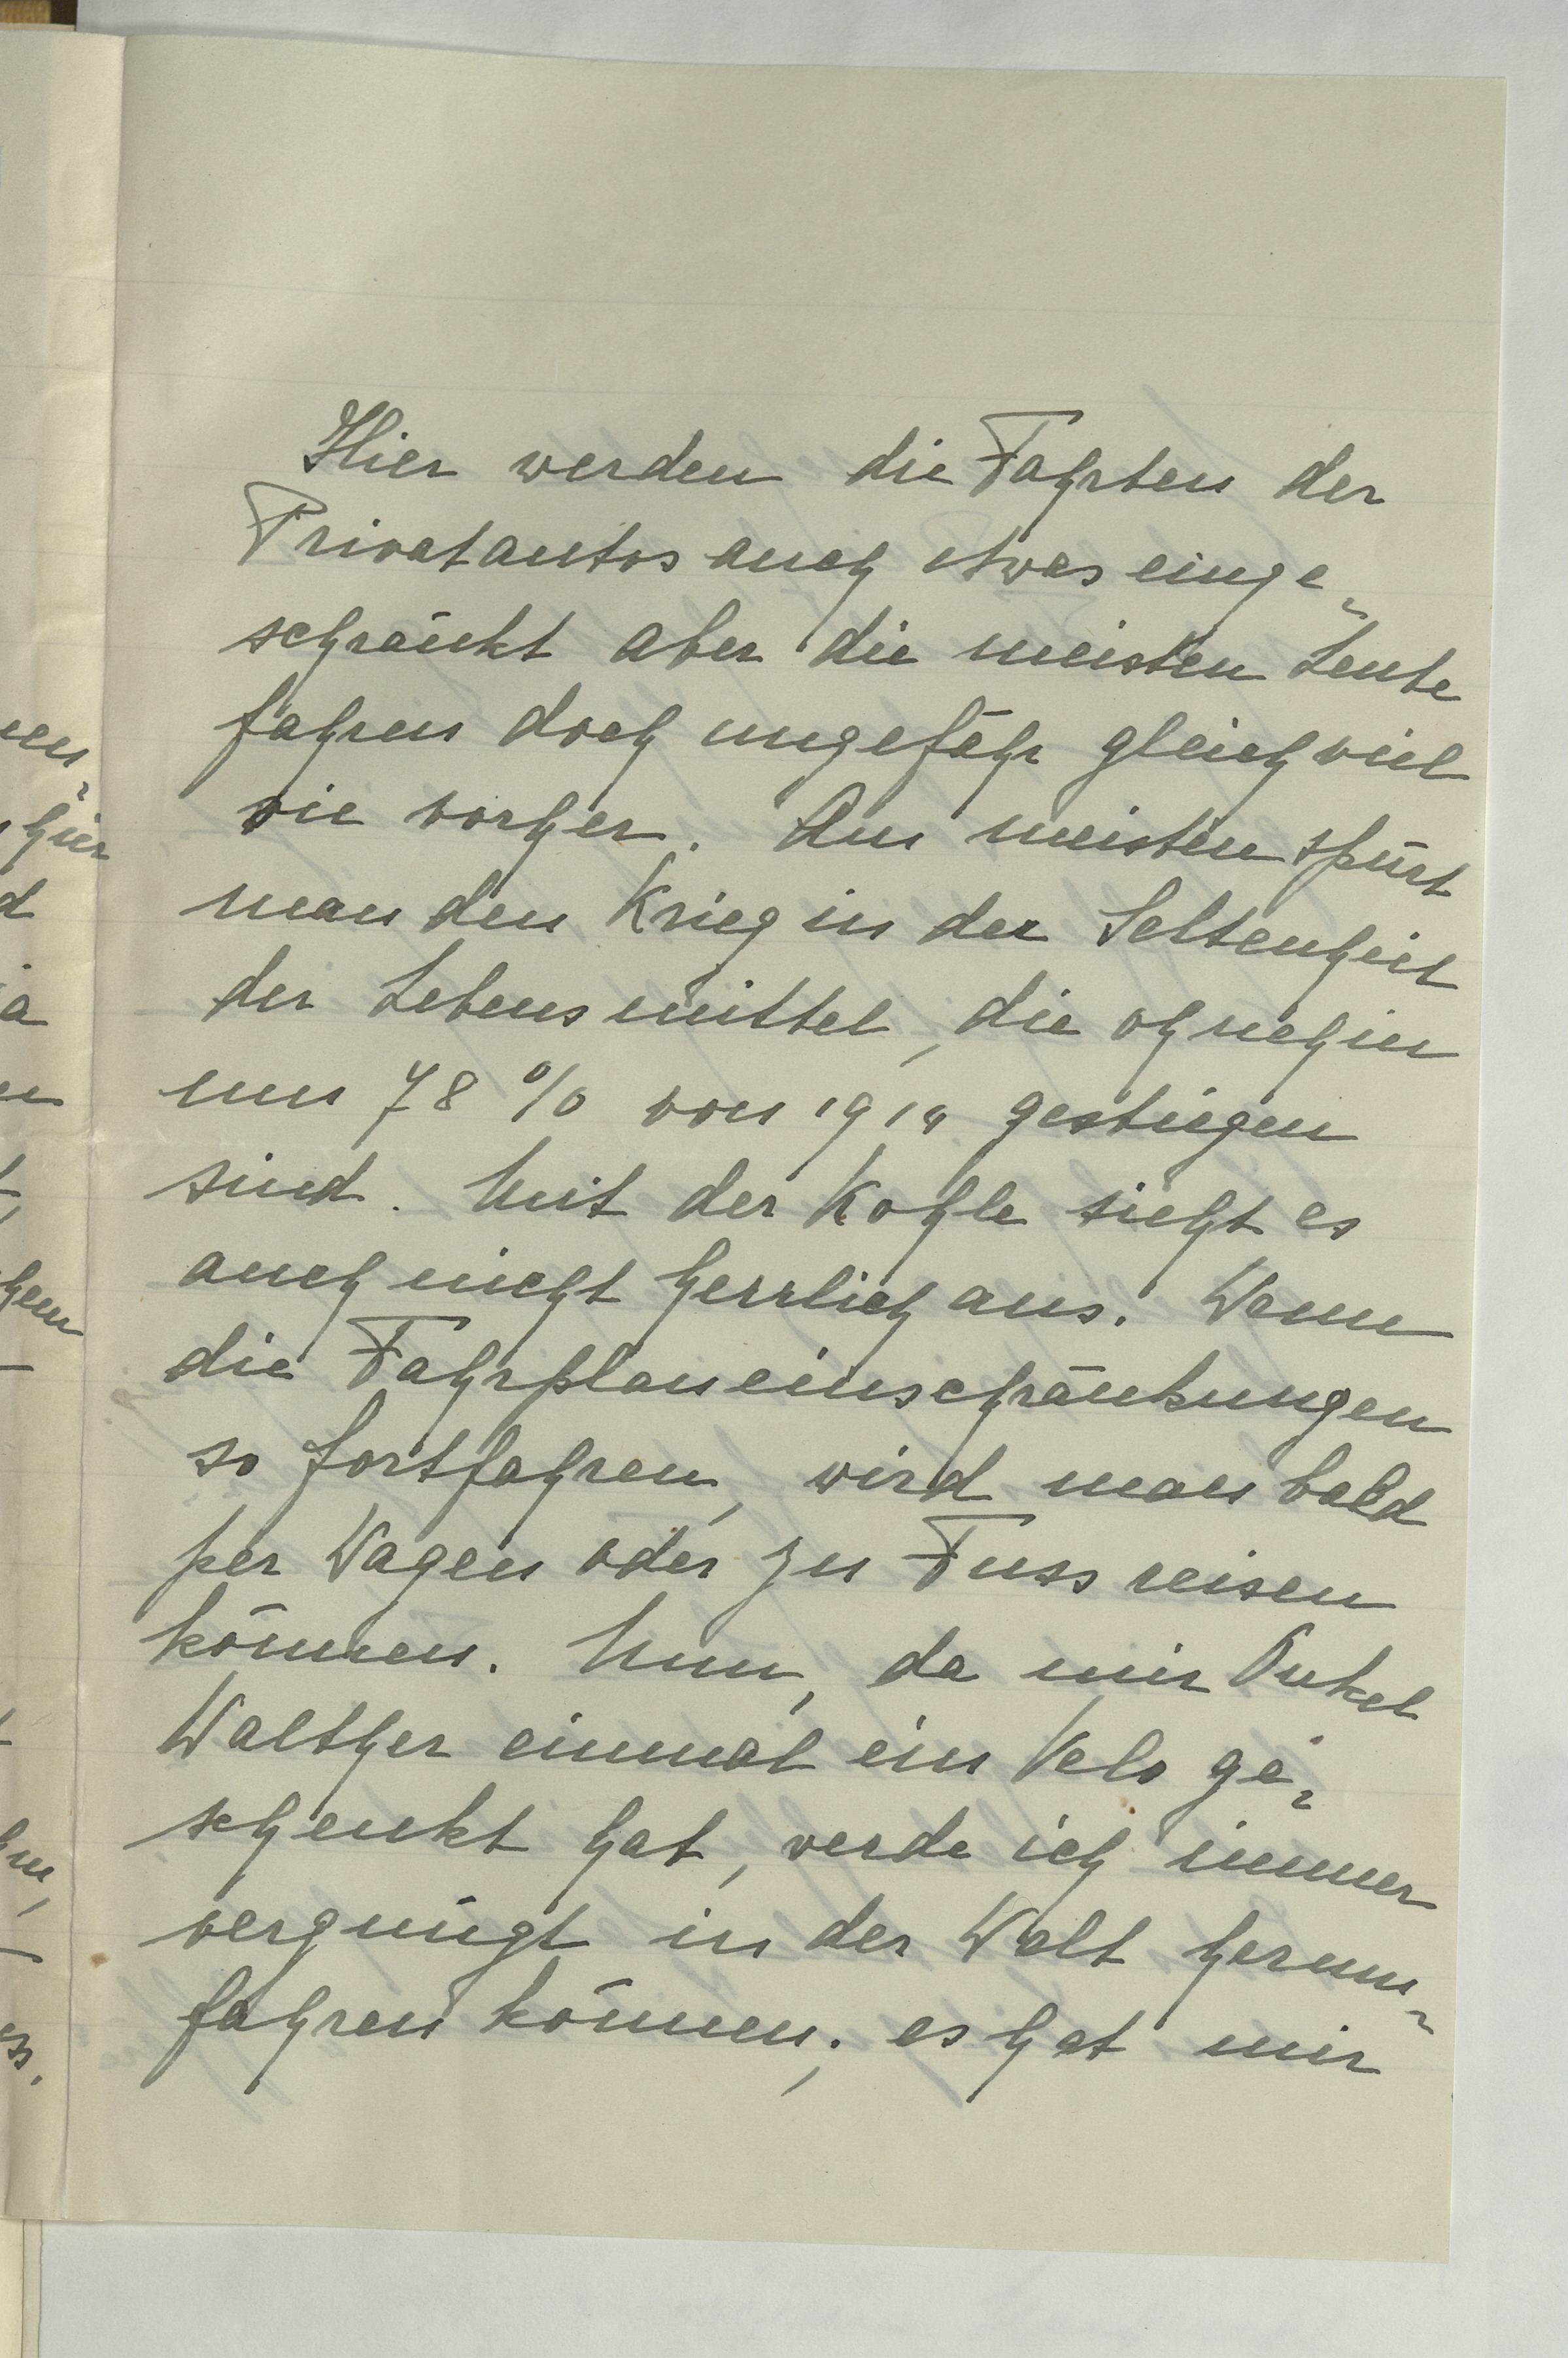 Hier werden die Fahrten der
Privatautos auch etwas einge-
schränkt aber die meisten Leute
fahren doch ungefähr gleich viel
wie vorher. Am meisten spürt
man den Krieg in der Seltenheit
der Lebensmittel, die ohnehin
um 78 % von 1914 gestiegen
sind. Mit der Kohle sieht es
auch nicht herrlich aus. Wenn
die Fahrplaneinschränkungen
so fortfahren, wird man bald
per Wagen oder zu Fuss reisen
können. Nun, da mir Onkel
Walther einmal ein Velo ge-
schenkt hat, werde ich immer
vergnügt in der Welt herum-
fahren können; es hat mir